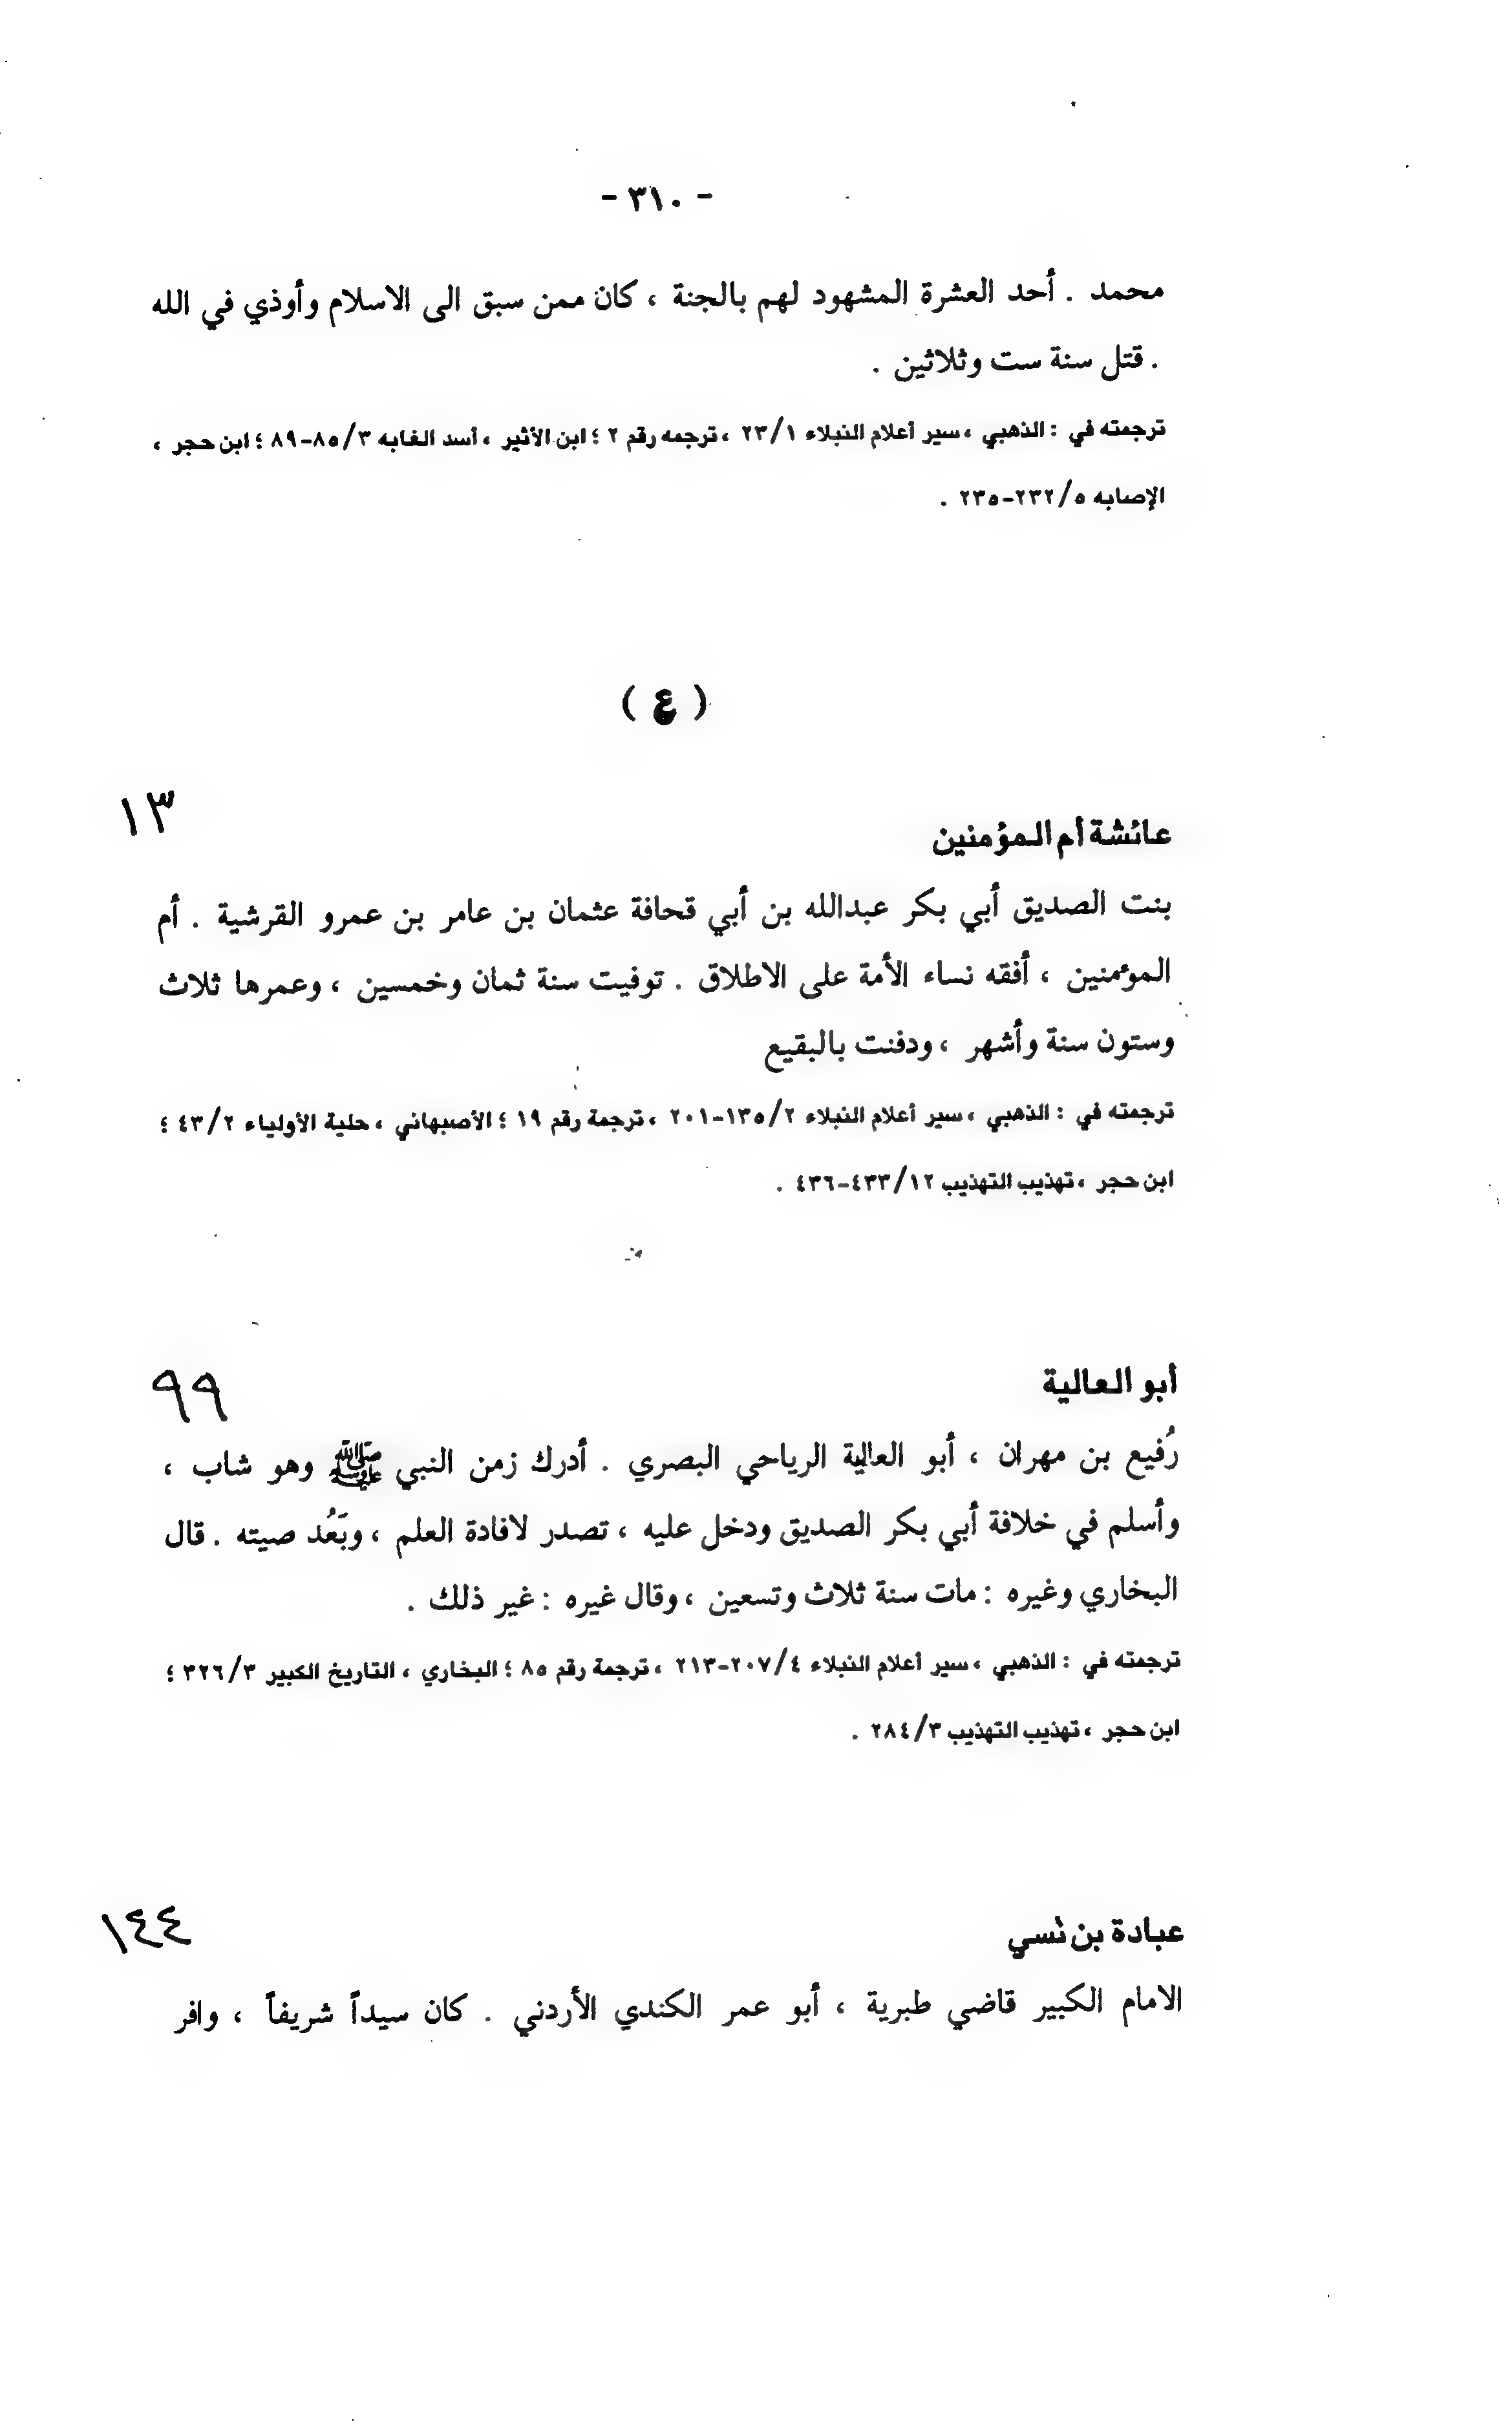 - ٣١٠ -
محمد . أحد العشرة المشهود لهم بالجنة ، كان ممن سبق الى الاسلام وأوذي في الله
. قتل سنة ست وثلاثين .
ترجمته في : الذهبي ، سير أعلام النبلاء ٢٣/١ ، ترجمه رقم ٢ ؛ ابن الأثير ، أسد الغابه ٨٥/٣-٨٩ ؛ ابن حجر ،
الإصابه ٢٣٢/٥-٢٣٥ .
( ع )
١٣
عائشة أم المؤمنين
بنت الصديق أبي بكر عبدالله بن أبي قحافة عثمان بن عامر بن عمرو القرشية . أم
المؤمنين ، أفقه نساء الأمة على الاطلاق . توفيت سنة ثمان وخمسين ، وعمرها ثلاث
وستون سنة وأشهر ، ودفنت بالبقيع
ترجمته في : الذهبي ، سير أعلام النبلاء ١٣٥/٢-٢٠١ ، ترجمة رقم ١٩ ؛ الأصبهاني ، حلية الأولياء ٤٣/٢ ؛
ابن حجر ، تهذيب التهذيب ٤٣٣/١٢-٤٣٦ .
أبو العالية
٩٩
رُفيع بن مهران ، أبو العالية الرياحي البصري . أدرك زمن النبي ﷺ وهو شاب ،
وأسلم في خلافة أبي بكر الصديق ودخل عليه ، تصدر لافادة العلم ، وبَعُد صيته . قال
البخاري وغيره : مات سنة ثلاث وتسعين ، وقال غيره : غير ذلك .
ترجمته في : الذهبي ، سير أعلام النبلاء ٢٠٧/٤-٢١٣ ، ترجمة رقم ٨٥ ؛ البخاري ، التاريخ الكبير ٣٢٦/٣ ؛
ابن حجر ، تهذيب التهذيب ٢٨٤/٣ .
عبادة بن نُسي
١٤٤
الامام الكبير قاضي طبرية ، أبو عمر الكندي الأردني . كان سيداً شريفاً ، وافر